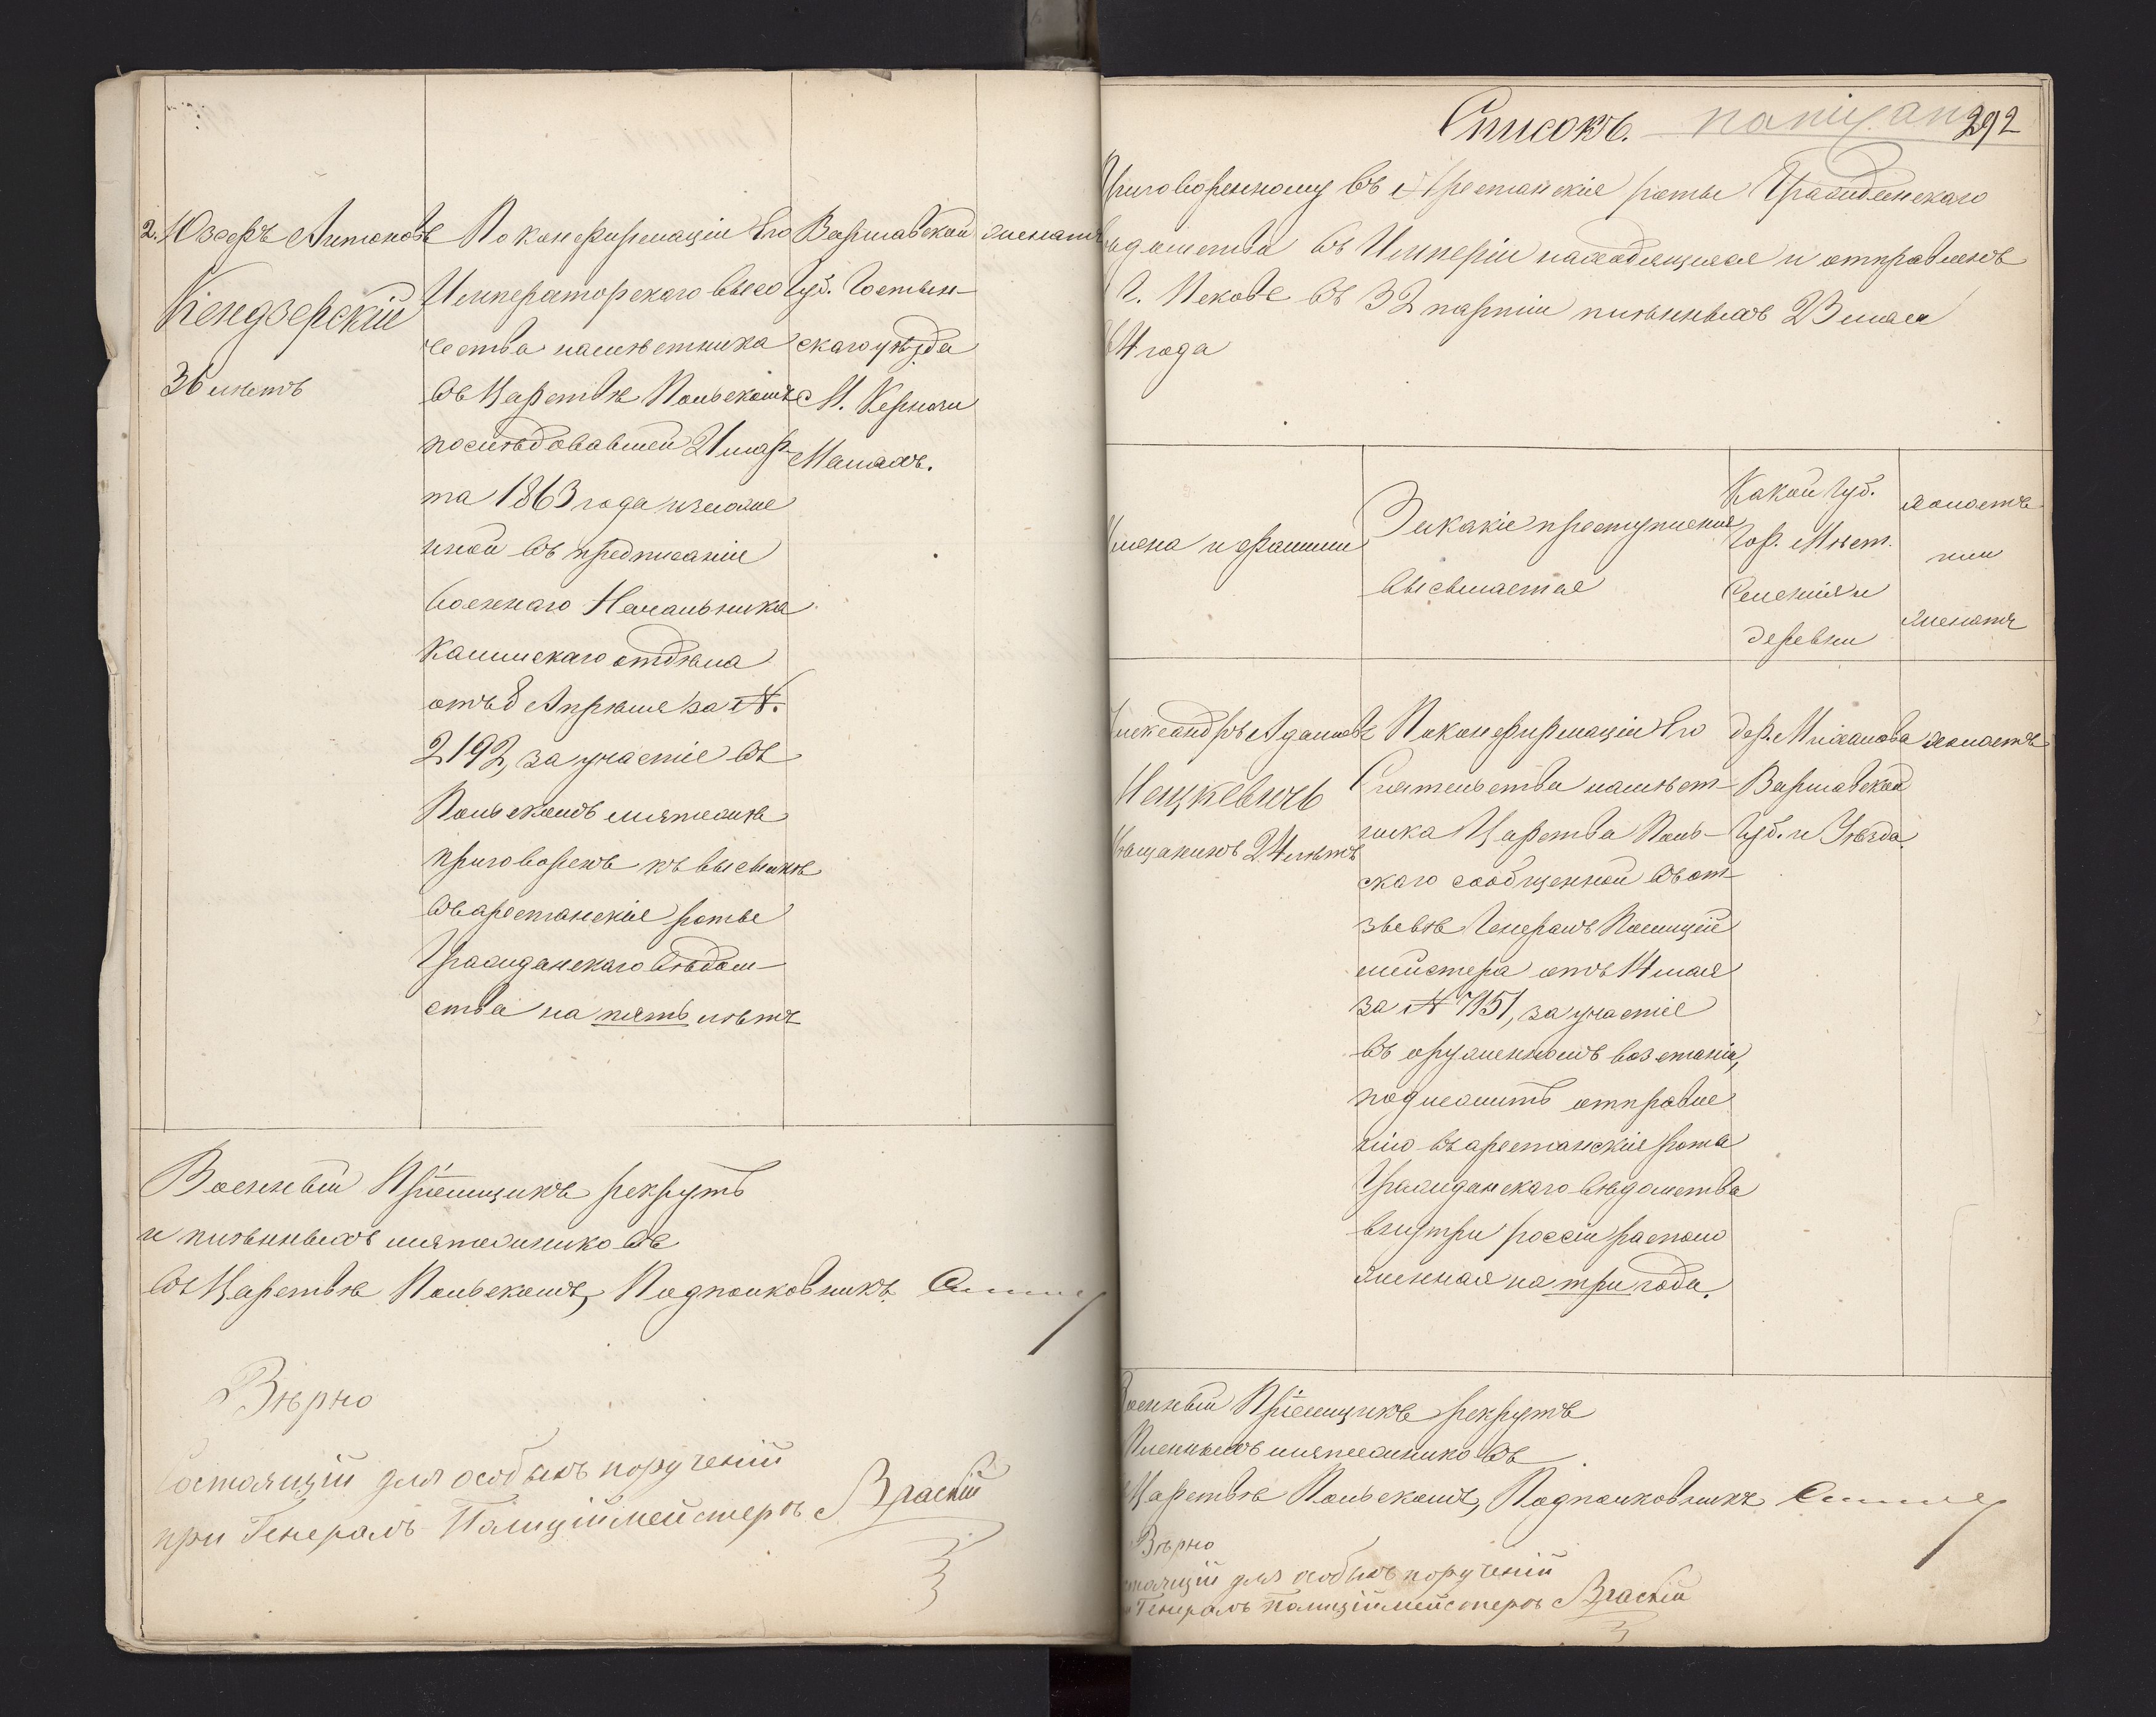 2. Юзефъ Антоновъ
Кендзерскій
36 лѣтъ
По конфирмаціи Его
Императорскаго Высо
чества намѣстника
въ Царствѣ Польскомъ
послѣдовавшей 21 мар-
та 1863 года изложе
нной въ предписаніи
Военнаго Начальника
Калишскаго отдѣла
отъ 8 Апрѣля за №.
2192, за участіе въ
Польскомъ мятежѣ
приговоренъ къ высылкѣ
въ арестанскіе роты
Гражданскаго Вѣдом-
ства на пять лѣтъ
Варшавской
Губ. Гостын-
скаго уѣзда
М.
женатъ
Военный Пріемщикъ рекрутъ
и плѣнныхъ мятежниковъ
въ Царствѣ Польскомъ, Подполковникъ
Вѣрно
Состоящій для особыхъ порученій
при Генералъ-Полиціймейстерѣ Власкій
Списокъ. 292
Приговоренному въ Арестанскіе роты Гражданскаго
вѣдомства въ Имперіи находящихся и отправленъ
Г. Пскове въ 32 партіи плѣнныхъ 23 мая
64 года
Имена и фамиліи
За какіе преступленія
высылается
Какой Губ.
Гор. Мѣст.
Селенія и
деревни
холостъ
или
женатъ
Александръ Адамовъ
Нецкевичъ
Мѣщанинъ 24 лѣтъ
По конфирмаціи Его
Сіятельства намѣст-
ника Царства Поль-
скаго сообщенной въ от-
зывѣ Генералъ Полицій
мейстера отъ 14 мая
за № 7151, за участіе
въ оруженномъ возстаніи,
подлежитъ отправле
нію въ арестанскіе роты
Гражданскаго вѣдомства
внутри россіи располо
женная на три года.
дер. Михалова
Варшавской
Губ. и Уѣзда
холостъ
Военный Пріемщикъ рекрутъ
Пленныхъ мятежниковъ
въ Царствѣ Польскомъ, Подполковникъ
Вѣрно
Состоящій для особыхъ порученій
при Генералъ Полиціймейстерѣ Власкій